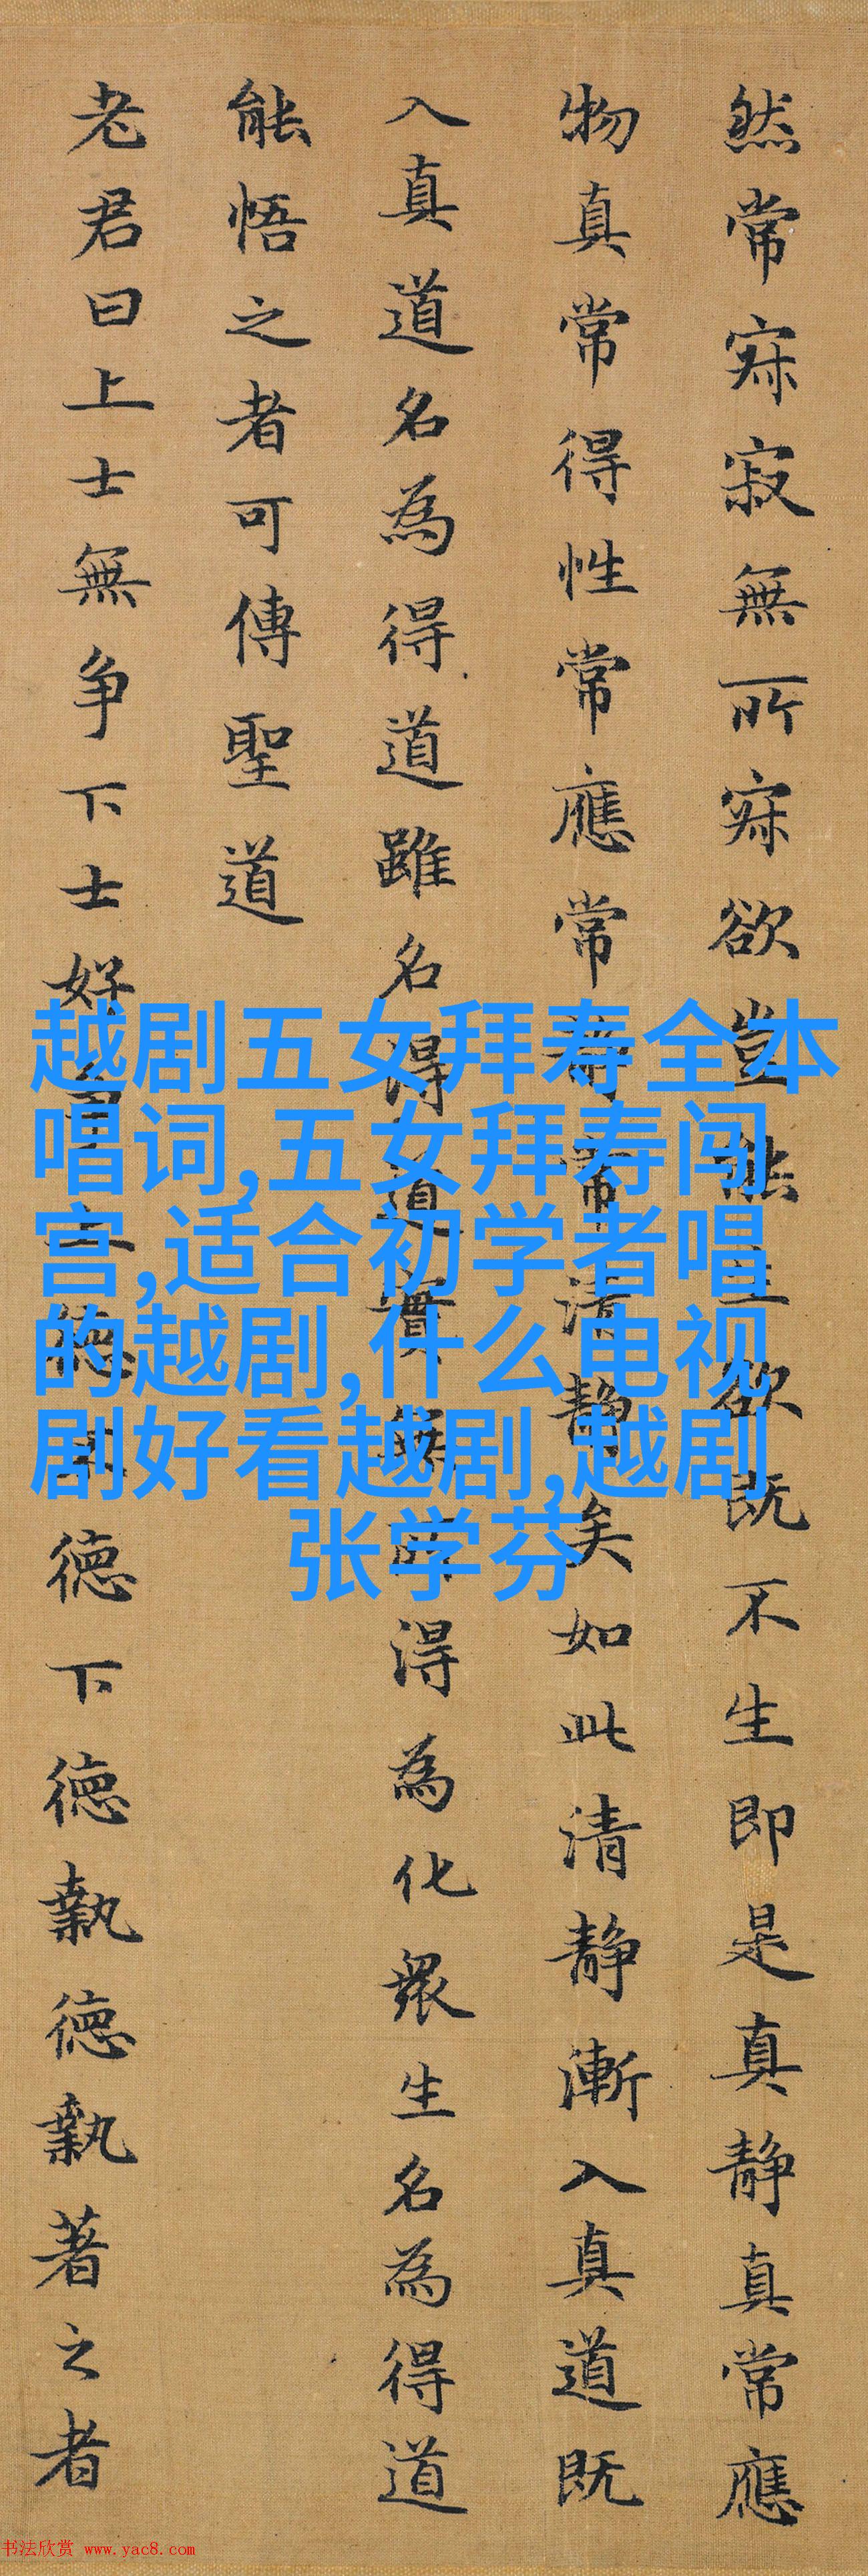 然常寂寂無所寂欲豈能生欲既不生即是真静真常應
物真常得性常應常静常清静矣如此清静漸入真道既
入真道名為得道雖名得道實無所得為化衆生名為得道
能悟之者可傳聖道
老君曰上士無争下士好争上德不德下德執德執著之者
越剧五女拜寿全本
唱词,五女拜寿闯
宫,适合初学者唱
的越剧,什么电视
剧好看越剧,越剧
张学芬
书法欣赏 www.yac8.com